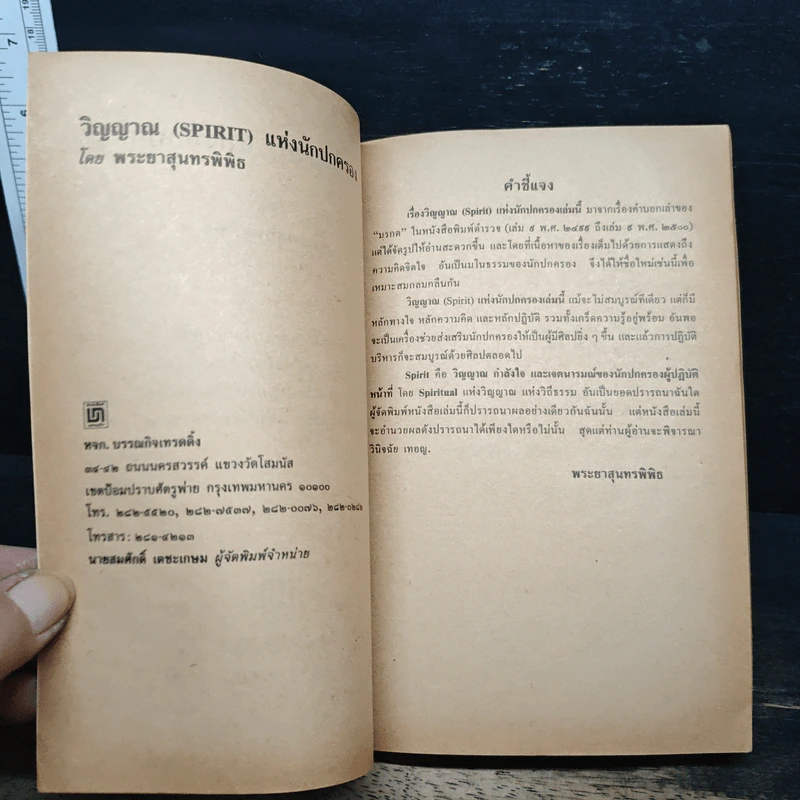 วิญญาณ (SPIRIT) แห่งนักปกครอง
โดย พระยาสุนทรพิพิธ
หจก. บรรณกิจเทรดดิ้ง
๓๔-๔๒ ถนนนครสวรรค์ แขวงวัดโสมนัส
เขตป้อมปราบศัตรูพ่าย กรุงเทพมหานคร ๑๐๑๐๐
โทร. ๒๘๒-๕๕๒๐, ๒๘๒-๗๕๓๗, ๒๘๒-๐๐๗๖,
โทรสาร: ๒๘๑-๔๒๑๓
นายสมศักดิ์ เตชะเกษม ผู้จัดพิมพ์จำหน่าย
คำชี้แจง
เรื่องวิญญาณ (Spirit) แห่งนักปกครองเล่มนี้ มาจากเรื่องคำบอกเล่าของ
"มรกต" ในหนังสือพิมพ์ตำรวจ (เล่ม ๙ พ.ศ. ๒๔๙๙ ถึงเล่ม ๙ พ.ศ. ๒๕๐๐)
แต่ได้จัดรูปให้อ่านสะดวกขึ้น และโดยที่เนื้อหาของเรื่องเต็มไปด้วยการแสดงถึง
ความคิดจิตใจ อันเป็นมโนธรรมของนักปกครอง จึงได้ให้ชื่อใหม่เช่นนี้เพื่อ
เหมาะสมกลมกลืนกัน
วิญญาณ (Spirit) แห่งนักปกครองเล่มนี้ แม้จะไม่สมบูรณ์ทีเดียว แต่ก็มี
หลักทางใจ หลักความคิด และหลักปฏิบัติ รวมทั้งเกร็ดความรู้อยู่พร้อม อันพอ
จะเป็นเครื่องช่วยส่งเสริมนักปกครองให้เป็นผู้มีศิลปยิ่ง ๆ ขึ้น และแล้วการปฏิบัติ
บริหารก็จะสมบูรณ์ด้วยศิลปตลอดไป
Spirit คือ วิญญาณ กำลังใจ และเจตนารมณ์ของนักปกครองผู้ปฏิบัติ
หน้าที่ โดย Spiritual แห่งวิญญาณ แห่งวิถีธรรม อันเป็นยอดปรารถนาฉันใด
ผู้จัดพิมพ์หนังสือเล่มนี้ก็ปรารถนาผลอย่างเดียวกันฉันนั้น แต่หนังสือเล่มนี้
จะอำนวยผลดังปรารถนาได้เพียงใดหรือไม่นั้น สุดแต่ท่านผู้อ่านจะพิจารณา
วินิจฉัย เทอญ.
พระยาสุนทรพิพิธ